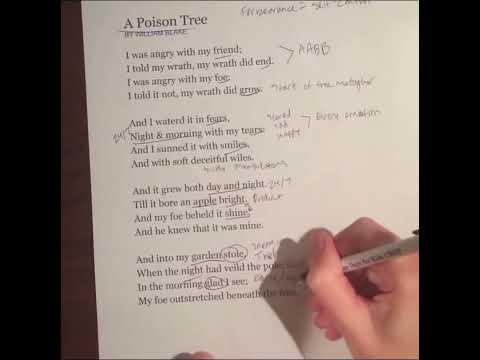 forbearance = self control
A Poison Tree
BY WILLIAM BLAKE
I was angry with my friend;
I told my wrath, my wrath did end.
AABB
I was angry with my foe:
I told it not, my wrath did grow.
start of tree metaphor
And I waterd it in fears,
scared
24/7 Night & morning with my tears:
sad
every emotion
And I sunned it with smiles,
happy
And with soft deceitful wiles.
And it grew both day and night.
24/7
Till it bore an apple bright.
Product
And my foe beheld it shine,
And he knew that it was mine.
And into my garden stole,
When the night had veild the pole;
In the morning glad I see;
My foe outstretched beneath the tree.